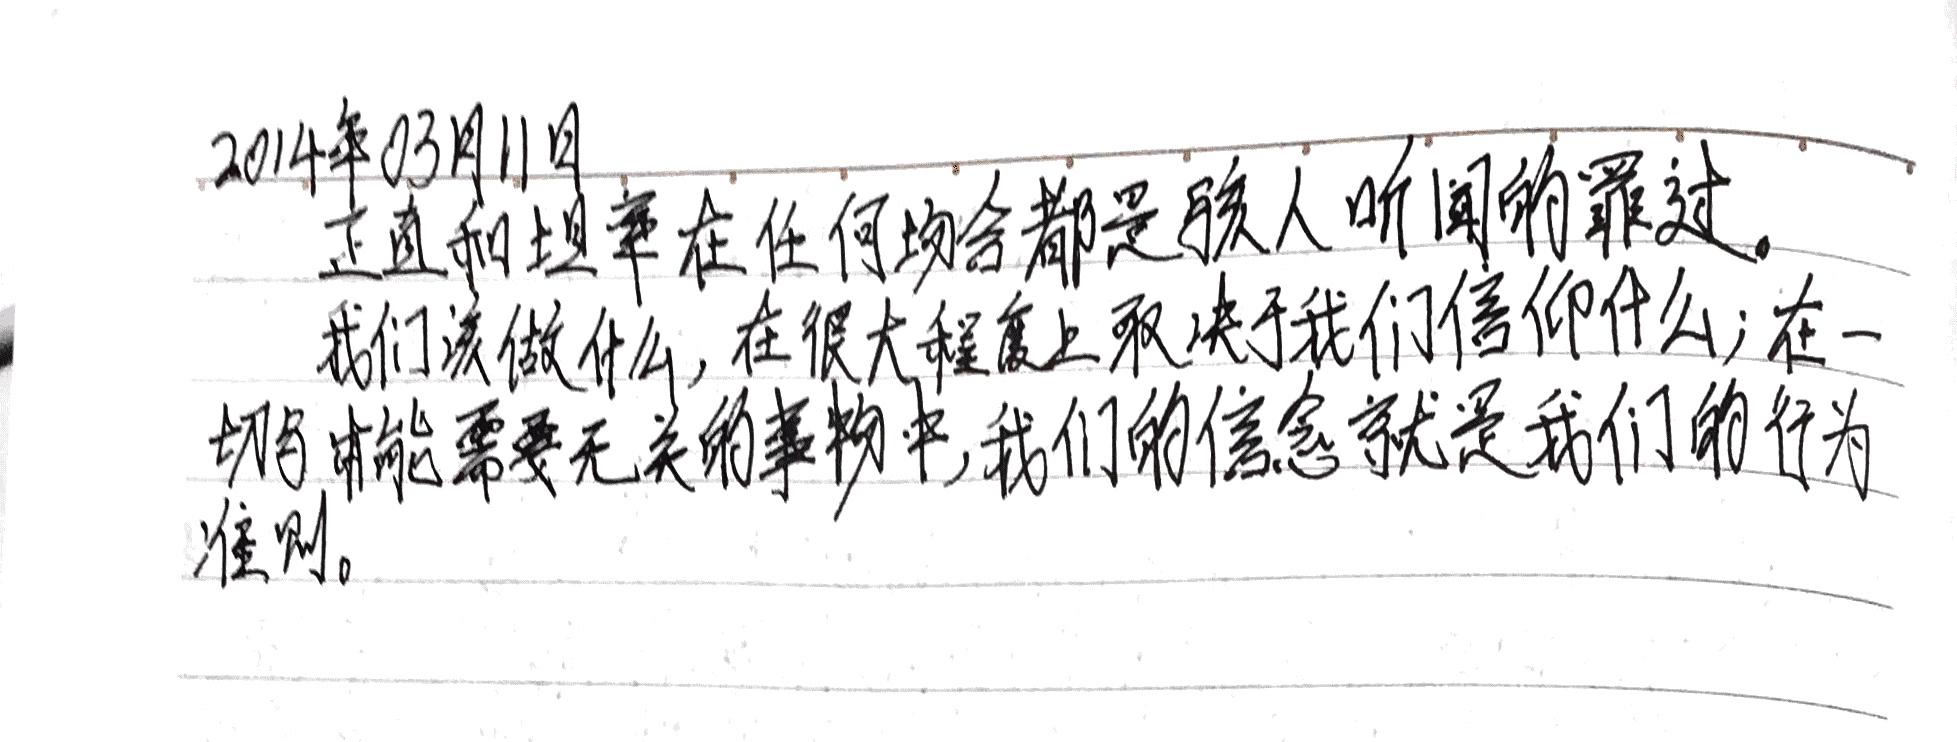 2014年03月11日
正直和坦率在任何场合都是骇人听闻的罪过。
我们该做什么，在很大程度上取决于我们信仰什么；在一
切与本能需要无关的事物中，我们的信念就是我们的行为
准则。